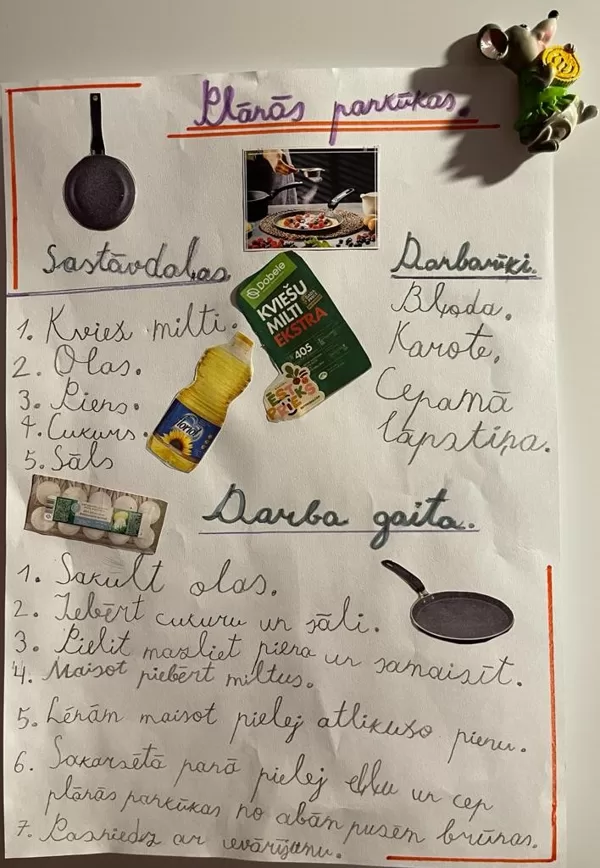 Plānās pankūkas.
Sastāvdaļas
Darbarīki.
1. Kviešu milti.
2. Olas.
3. Piens.
4. Cukurs.
5. Sāls
Bļoda.
Karote.
Cepamā
lāpstiņa.
Dobele
KVIEŠU
MILTI
EKSTRA
405
ĒST
PRIEKS
Floriol
Darba gaita.
1. Sakult olas.
2. Iebērt cukuru un sāli.
3. Pielit mazliet piena un samaisīt.
4. Maisot piebērt miltus.
5. Lēnām maisot pielej atlikušo pienu.
6. Sakarsētā pannā pielej eļļu un cep
plānās pankūkas no abām pusēm brūnas.
7. Pasniedz ar ievārījumu.